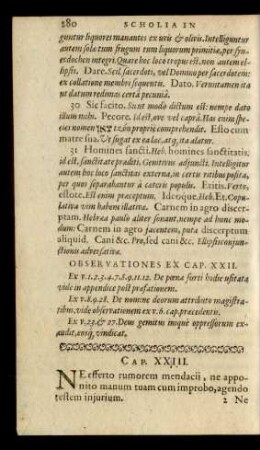 280 SCHOLIA IN
guntur liquores manantes ex uvis & olivis. Intelliguntur
autem solæ tum frugum tum liquorum primitiæ, per syn-
ecdochen integri. Quare hoc loco tropus est, non autem el-
lipsis. Dare. Scil. sacerdoti, vel Domino per sacerdotem:
ex collatione membri sequentis. Dato. Veruntamen ita
ut datum redimas certâ pecuniâ.
30 Sic facito. Sunt modo dictum est: nempe dato
illum mihi. Pecore. Id est, ove vel caprâ. Has enim spe-
cies nomen צאן propriè comprehendit. Esto cum
matre sua. Ut sugat ex ea lac, atq, ita alatur.
31 Homines sancti. Heb. homines sanctitatis:
id est, sanctitate præditi. Genitivus adjuncti. Intelligitur
autem hoc loco sanctitas externa, in certis ritibus posita,
per quos separabantur à cæteris populis. Eritis. Verto,
estote. Est enim præceptum, Ideoque. Heb. Et. Copu-
lativa vim habens illativæ. Carnem in agro discer-
ptam. Hebræa paulò aliter sonant, nempe ad hunc mo-
dum: Carnem in agro jacentem, puta discerptum
aliquid, Cani &c. Pro, sed cani &c. Ellipsis conjun-
ctionis adversativæ.
OBSERVATIONES EX CAP. XXII.
Ex v. 1. 2. 3. 4. 7. 8. 9. 11. 12. De pœna furti hodie usitata
vide in appendice post præfationem.
Ex v. 8. 9. 28. De nomine deorum attributo magistra-
tibus, vide observationem ex v. 6. cap. præcedentis.
Ex v. 23. & 27. Deus gemitus inopū oppressorum ex-
audit, eosq, vindicat.
CAP. XXIII.
NE efferto rumorem mendacii, ne appo-
nito manum tuam cum improbo, agendo
testem injurium.
2 Ne